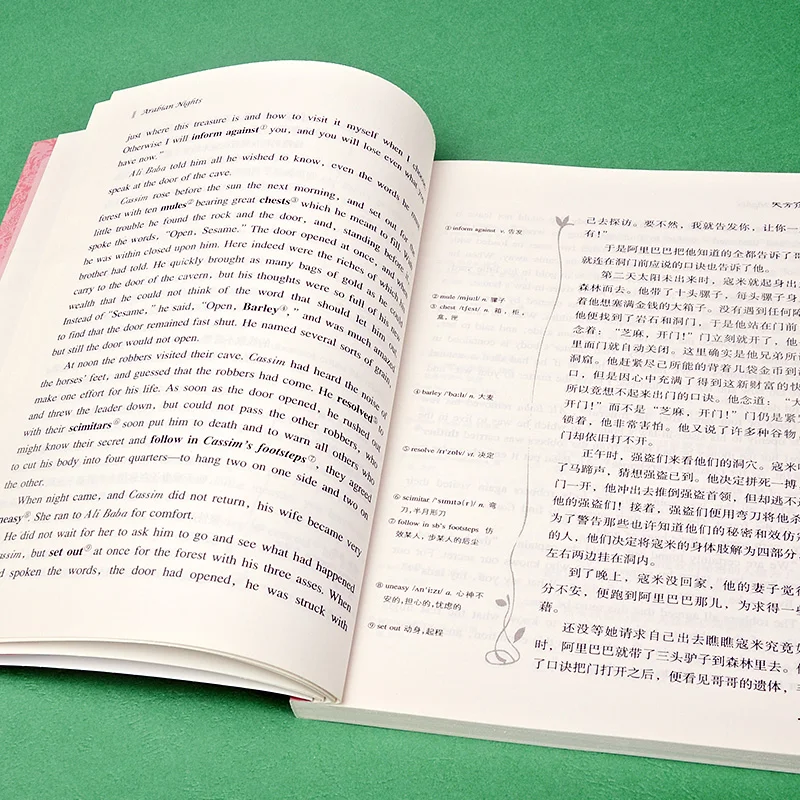 Arabian Nights
just where this treasure is and how to visit it myself when I
Otherwise I will inform against① you, and you will lose even what
have now."
Ali Baba told him all he wished to know, even the words he
speak at the door of the cave.
Cassim rose before the sun the next morning, and set out for
forest with ten mules② bearing great chests③ which he meant to fill. With
little trouble he found the rock and the door, and, standing before
spoke the words, "Open, Sesame." The door opened at once, and when
he was within closed upon him. Here indeed were the riches of which his
brother had told. He quickly brought as many bags of gold as he could
carry to the door of the cavern, but his thoughts were so full of his new
wealth that he could not think of the word that should let him out.
Instead of "Sesame," he said, "Open, Barley④," and was much amazed
to find that the door remained fast shut. He named several sorts of grain,
but still the door would not open.
At noon the robbers visited their cave. Cassim had heard the noise of
the horses' feet, and guessed that the robbers had come. He resolved⑤ to
make one effort for his life. As soon as the door opened, he rushed out
and threw the leader down, but could not pass the other robbers, who
with their scimitars⑥ soon put him to death and to warn all others who
might know their secret and follow in Cassim's footsteps⑦, they agreed
to cut his body into four quarters—to hang two on one side and two on
the other.
When night came, and Cassim did not return, his wife became very
uneasy⑧. She ran to Ali Baba for comfort.
He did not wait for her to ask him to go and see what had happened
Cassim, but set out⑨ at once for the forest with his three asses. When
spoken the words, the door had opened, he was struck with
① inform against v. 告发
② mule /mjuːl/ n. 骡子
③ chest /tʃest/ n. 箱，柜，
盒，匣
④ barley /'bɑːli/ n. 大麦
⑤ resolve /rɪ'zɒlv/ vt. 决定
⑥ scimitar /'sɪmɪtə(r)/ n. 弯
刀，半月形刀
⑦ follow in sb's footsteps 仿
效某人，步某人的后尘
⑧ uneasy /ʌn'iːzɪ/ a. 心神不
安的，担心的，忧虑的
⑨ set out 动身，起程
己去探访。要不然，我就告发你，让你一
有！”
于是阿里巴巴把他知道的全都告诉了哥
就连在洞门前应说的口诀也告诉了他。
第二天太阳未出来时，寇米就起身出
森林而去。他带了十头骡子，每头骡子身
着他想塞满金钱的大箱子。没有遇到任何
他便找到了岩石和洞门，于是他站在门前
念着：“芝麻，开门！”门立刻就开了，他
里面门就自动关闭。这里确实是他兄弟所
洞窟。他赶紧尽己所能的背着几袋金币到
口，但是因心中充满了得到这新财富的快
所以竟想不起来出门的口诀。他念道：“大
开门！”而不是“芝麻，开门！”门仍是紧
锁着，他非常害怕。他又说了许多种谷物
门却依旧打不开。
正午时，强盗们来看他们的洞穴。寇米
了马蹄声，猜想强盗已到。他决定拼死一搏
门一开，他冲出去推倒强盗首领，但却逃不
他的强盗们！接着，强盗们便用弯刀将他杀
为了警告那些也许知道他们的秘密和效仿
的人，他们决定将寇米的身体肢解为四部分
左右两边挂在洞内。
到了晚上，寇米没回家，他的妻子觉得
分不安，便跑到阿里巴巴那儿，为求得一
藉。
还没等她请求自己出去瞧瞧寇米究竟
时，阿里巴巴就带了三头驴子到森林里去。
了口诀把门打开之后，便看见哥哥的遗体，